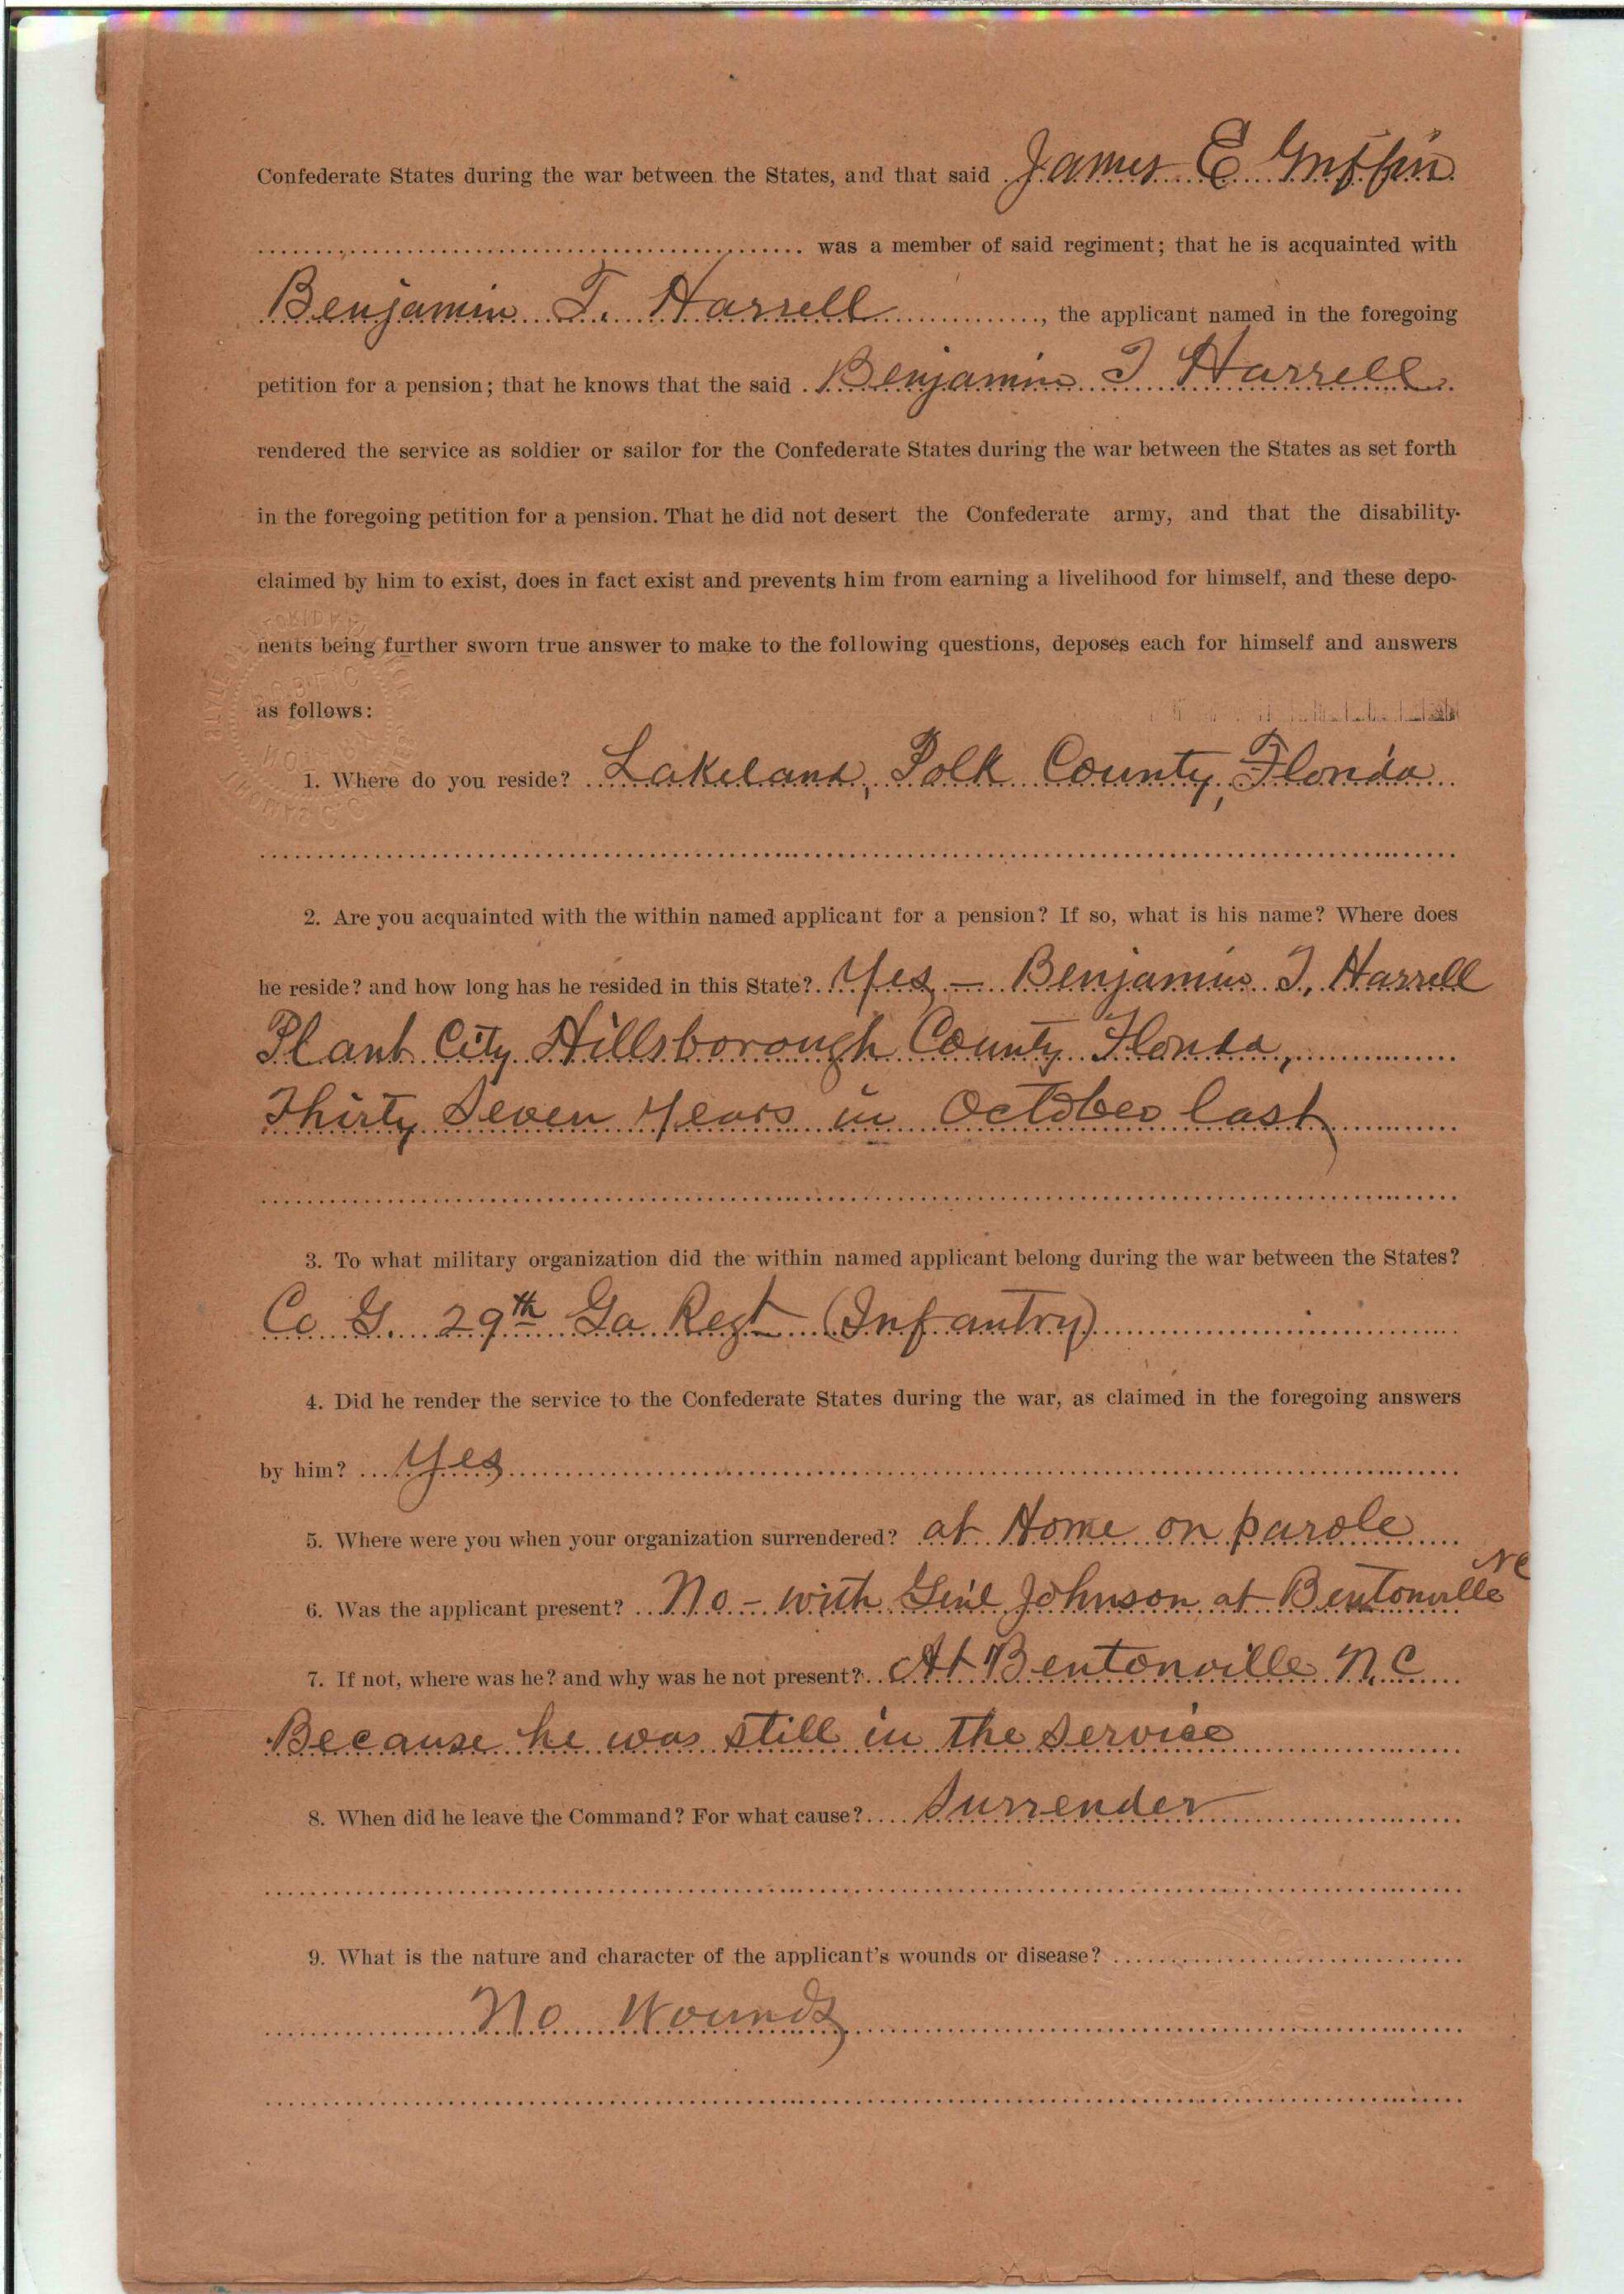 Confederate States during the war between the States, and that said James E Griffin
was a member of said regiment; that he is acquainted with
Benjamin T. Harrell, the applicant named in the foregoing
petition for a pension; that he knows that the said Benjamin T Harrell
rendered the service as soldier or sailor for the Confederate States during the war between the States as set forth
in the foregoing petition for a pension. That he did not desert the Confederate army, and that the disability
claimed by him to exist, does in fact exist and prevents him from earning a livelihood for himself, and these depo-
nents being further sworn true answer to make to the following questions, deposes each for himself and answers
as follows:
1. Where do you reside? Lakeland, Polk County, Florida
2. Are you acquainted with the within named applicant for a pension? If so, what is his name? Where does
he reside? and how long has he resided in this State? Yes — Benjamin T. Harrell
Plant City Hillsborough County Florida,
Thirty Seven Years in October last
3. To what military organization did the within named applicant belong during the war between the States?
Co G. 29th Ga Regt (Infantry)
4. Did he render the service to the Confederate States during the war, as claimed in the foregoing answers
by him? Yes
5. Where were you when your organization surrendered? at Home on parole
6. Was the applicant present? No - with Gen'l Johnson at Bentonville NC
7. If not, where was he? and why was he not present? At Bentonville N.C
Because he was still in the service
8. When did he leave the Command? For what cause? Surrender
9. What is the nature and character of the applicant's wounds or disease?
No Wounds